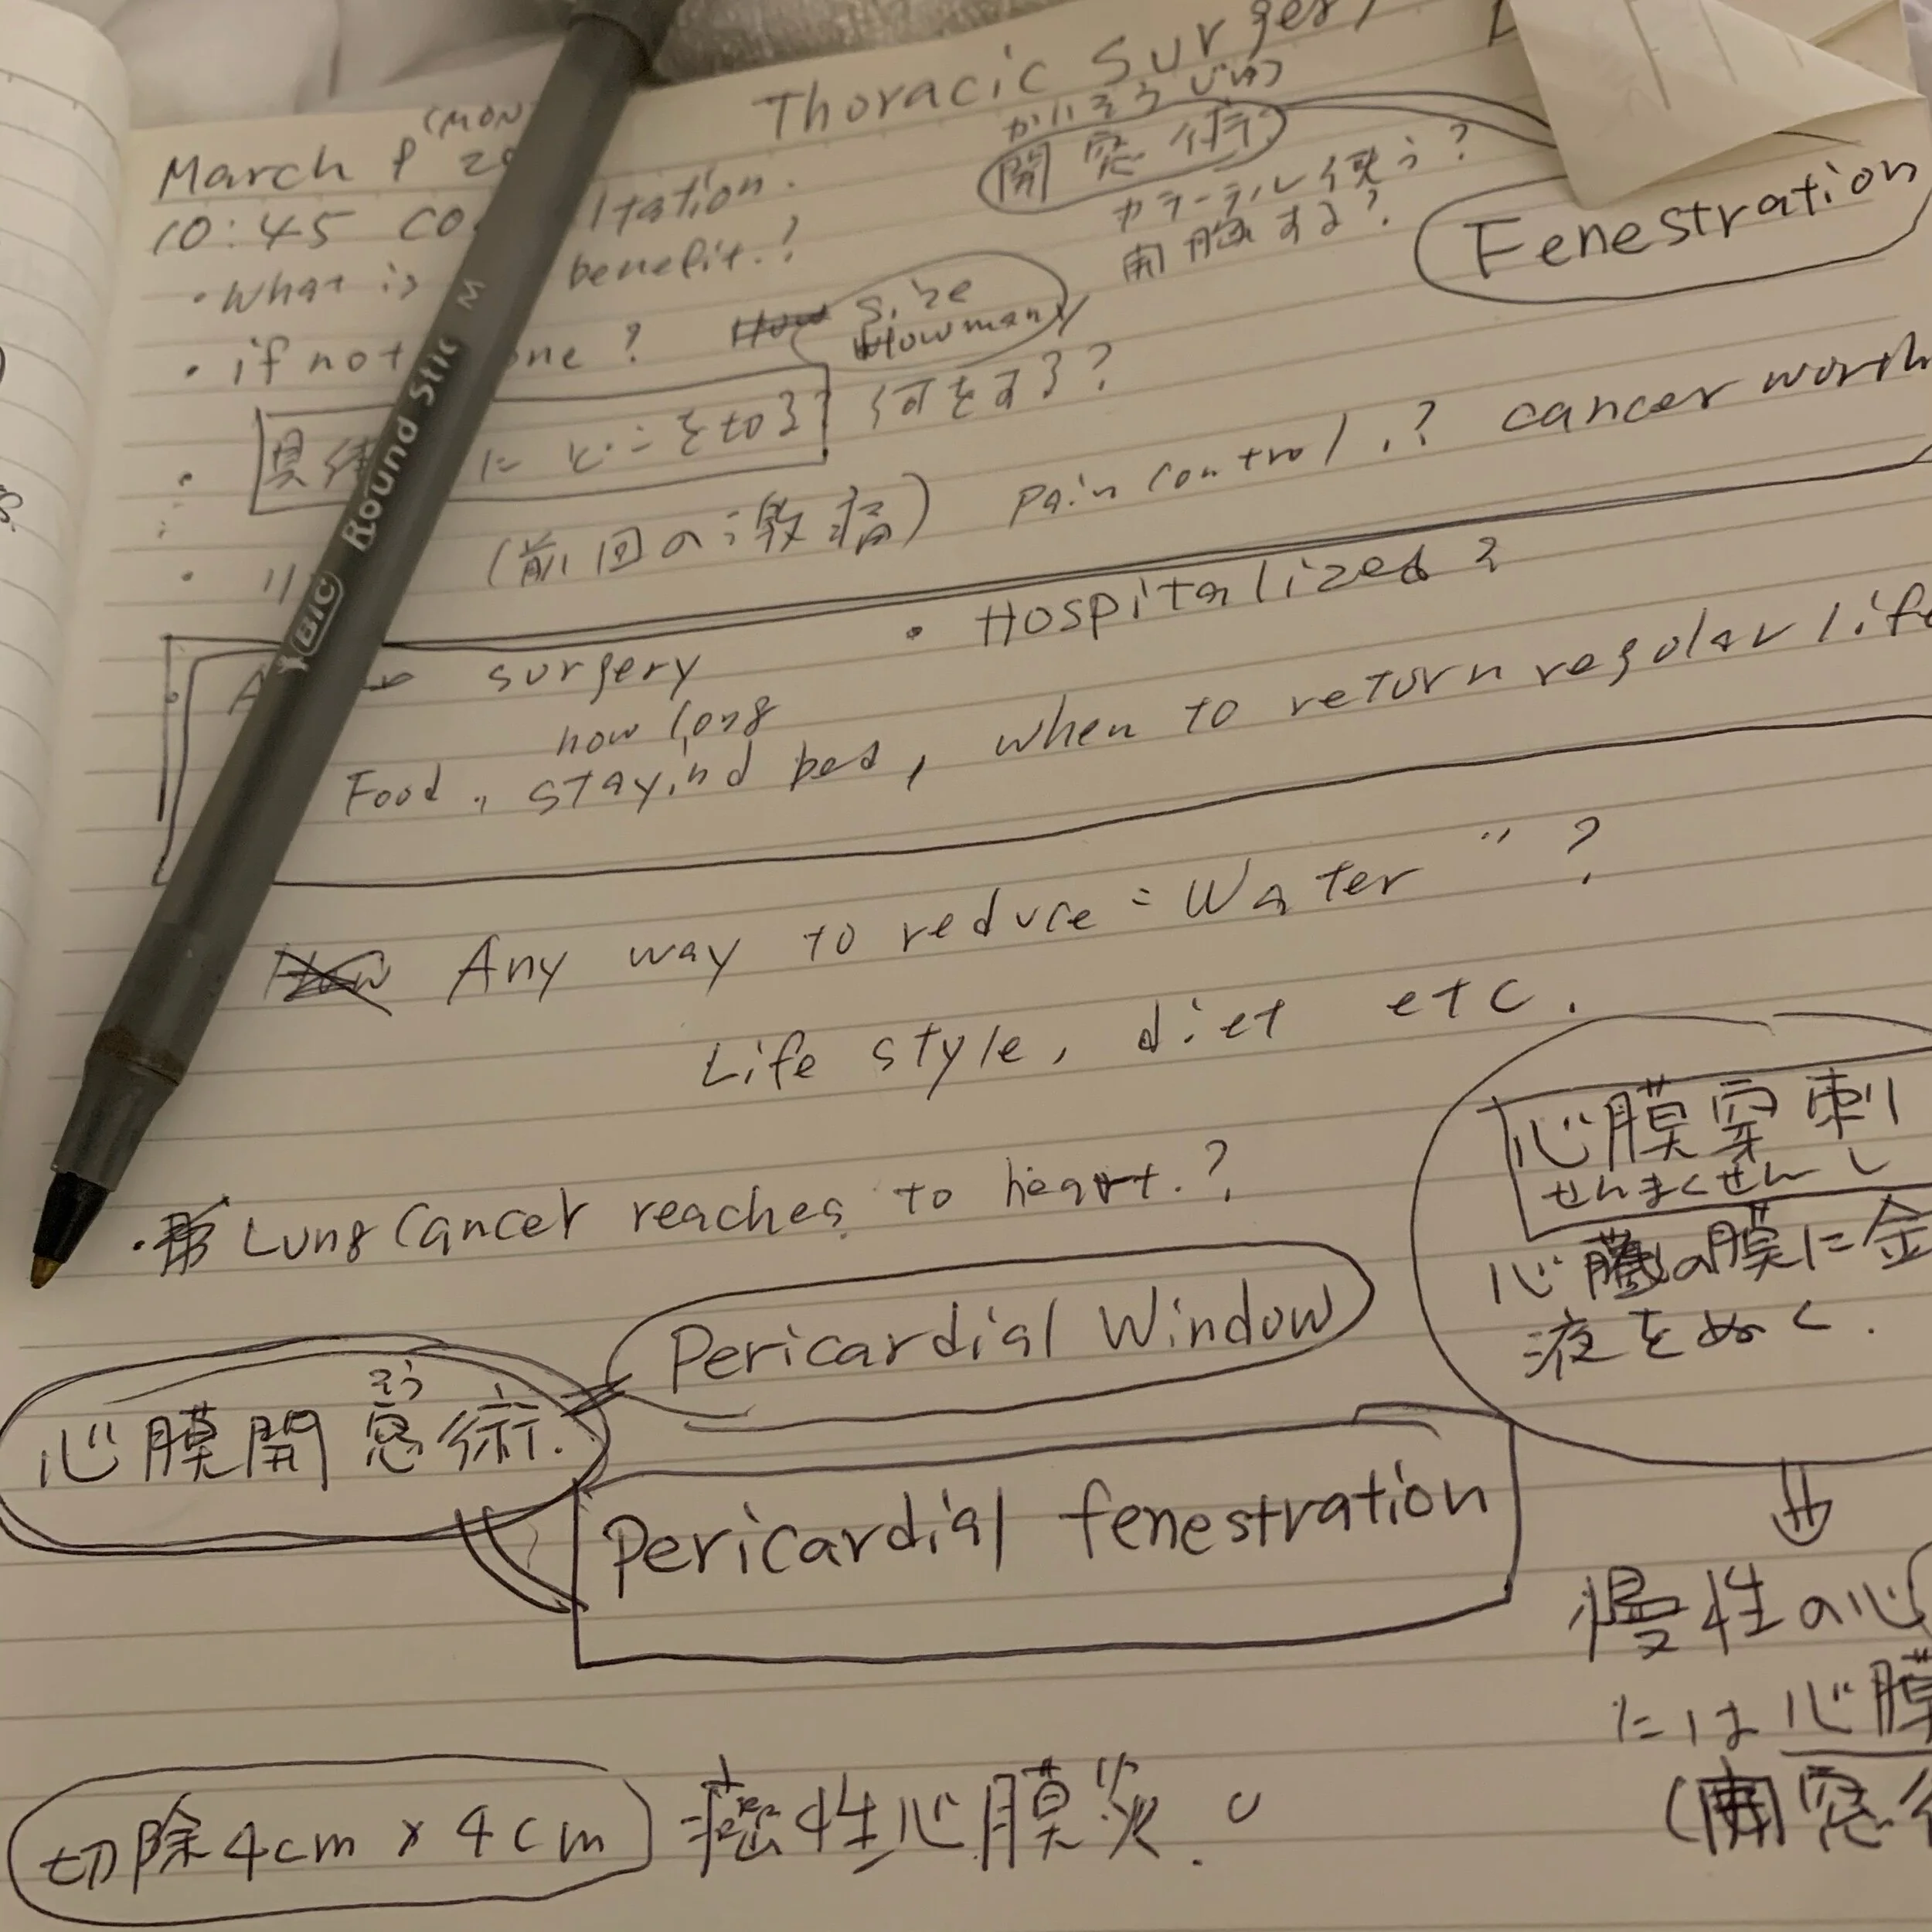 Thoracic Surgery
(MON
March 9 20
かいそうじゅつ
開窓術
10:45 Co ltation.
カテーテル使う?
開胸する?
Fenestration
・What is benefit.?
・if not one?
Size
How many
具体 に どこをとる? 何をする?
(前回の激痛) Pain control.? cancer worth
・Hospitalized?
surgery
how long
Food, stayind bed, when to return regular life
Any way to reduce "Water"?
Life style, diet etc.
心膜穿刺
せんまくせんし
・Lung Cancer reaches to heart.?
心臓の膜に金
液をぬく.
Pericardial Window
そう
心膜開窓術.
Pericardial fenestration
慢性の心
には心膜
(開窓術
切除4cm x 4cm 癌性心膜炎.
BIC Round Stic M